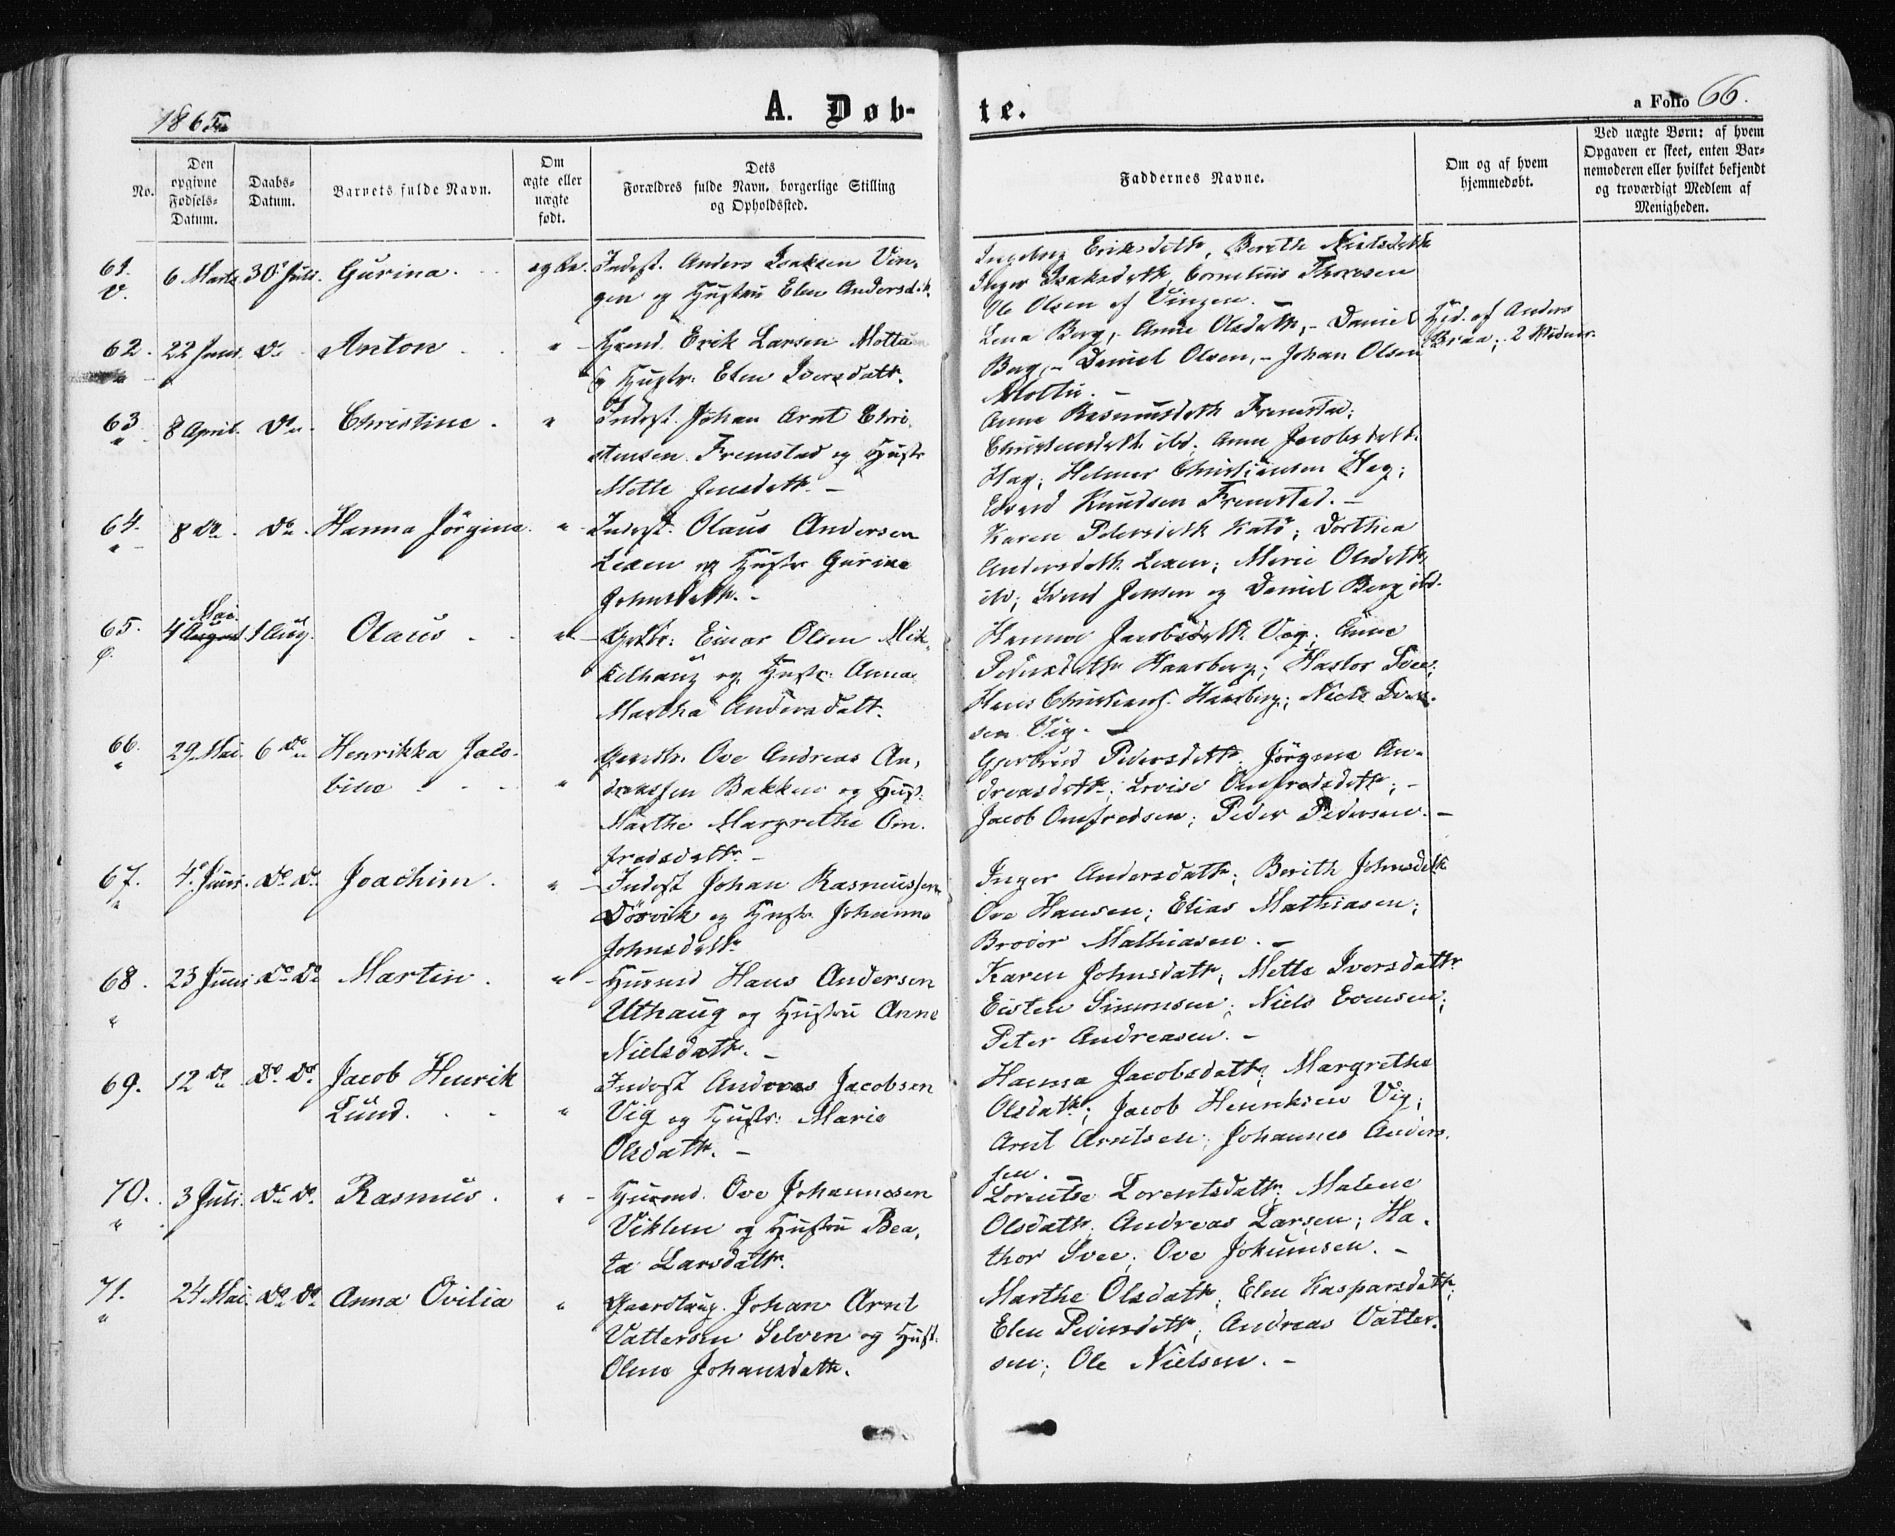 1865
A. Døb-
te.
a Folio 66.
No.
Den
opgivne
Fødsels-
Datum.
Daabs-
Datum.
Barnets fulde Navn.
Om
ægte eller
uægte
født.
Dets
Forældres fulde Navn, borgerlige Stilling
og Opholdssted.
Faddernes Navne.
Om og af hvem
hjemmedøbt.
Ved uægte Børn: af hvem
Opgaven er skeet, enten Bar-
nemoderen eller hvilket bekjendt
og troværdigt Medlem af
Menigheden.
61. 6 Marts 30 Juli. Gurina. Inderst. Anders Isaksen Vin-
gen og Hustru Elen Andersdtr.
Ingeborg Eriksdatr, Berith Nielsdatr
Inger Isaksdatr, Cornelius Thoresen
Ole Olsen af Vingen. –
62. 22 Juni do Anton " Husmd. Erik Larsen Mottu
og Hustr: Elen Iversdatr.
Lena Berg, Anne Olsdatr, – Daniel
Berg, – Daniel Olsen, – Johan Olsen
Mottu. –
Hjd. af Anders
Braa; 2 Vidner.
63 8 April. do Christine. " Inderst. Johan Arnt Chri-
stensen Fremstad og Hustr
Mette Jensdatr. –
Anne Rasmusdatr Fremstad;
Christensdatr ibd; Anne Jacobsdatr
Hag; Helmer Christiansen Hag;
Edvard Knudsen Fremstad. –
64. 8 do. do. Hanna Jörgine. " Inderst. Olaus Andersen
Lexen og Hustr Gurine
Johnsdatr. –
Karen Pedersdatr Katö; Dorthea
Andersdatr Lexen; Marie Olsdatr
ibd; Svend Jensen og Daniel Berg ibd.
65. 4 Mai. 1 Aug. Olaus " Einar Olsen Mik-
kelhaug og Hustr: Anna
Martha Andersdatr.
Hanna Jacobsdatr Vig; Anne
Pedersdatr Haarberg; Hastor Svee;
Hans Christians. Haarberg; Niels Iver-
sen Vig. –
66. 29 Mai. 6 do Henrikka Jaco-
bine " Ove Andreas An-
dreassen Bakken og Hust:
Marthe Margrethe On-
fredsdatr. –
Gjertrud Pedersdatr; Jörgine An-
dreasdatr; Lovise Onfredsdatr; –
Jacob Onfredsen; Peder Pedersen. –
67. 4 Juni. do do Joachim. " Inderst Johan Rasmussen
Dösvik og Hustr Johanna
Johnsdatr
Inger Andersdatr; Berith Johnsdatr
Ove Hansen; Elias Mathiasen;
Broder Mathiasen. –
68. 23 Juni do do Martin. " Husmd Hans Andersen
Uthaug og Hustru Anne
Nielsdatr. –
Karen Johnsdatr; Mette Iversdatr
Eisten Simonsen; Niels Evensen;
Peter Andreasen. –
69. 12 do do do Jacob Henrik
Lund. " Inderst Andreas Jacobsen
Vig og Hustr: Marie
Olsdatr. –
Hanna Jacobsdatr; Margrethe
Olsdatr; Jacob Henriksen Vig;
Arnt Arntsen; Johannes Anders-
sen. –
70. 3 Juli. do do. Rasmus. " Husmd. Ove Johannesen
Viklem og Hustru Bea-
ta Larsdatr.
Lorentse Lorentsdatr; Malene
Olsdatr; Andreas Larsen; Ha-
thor Svee; Ove Johannsen. –
71. 24 Mai. do do Anna Ovilia " Johan Arnt
Vattersen Selven og Hust.
Oline Johansdatr.
Marthe Olsdatr; Elen Kasparsdatr;
Elen Pedersdatr; Andreas Vatter-
sen; Ole Nielsen. –